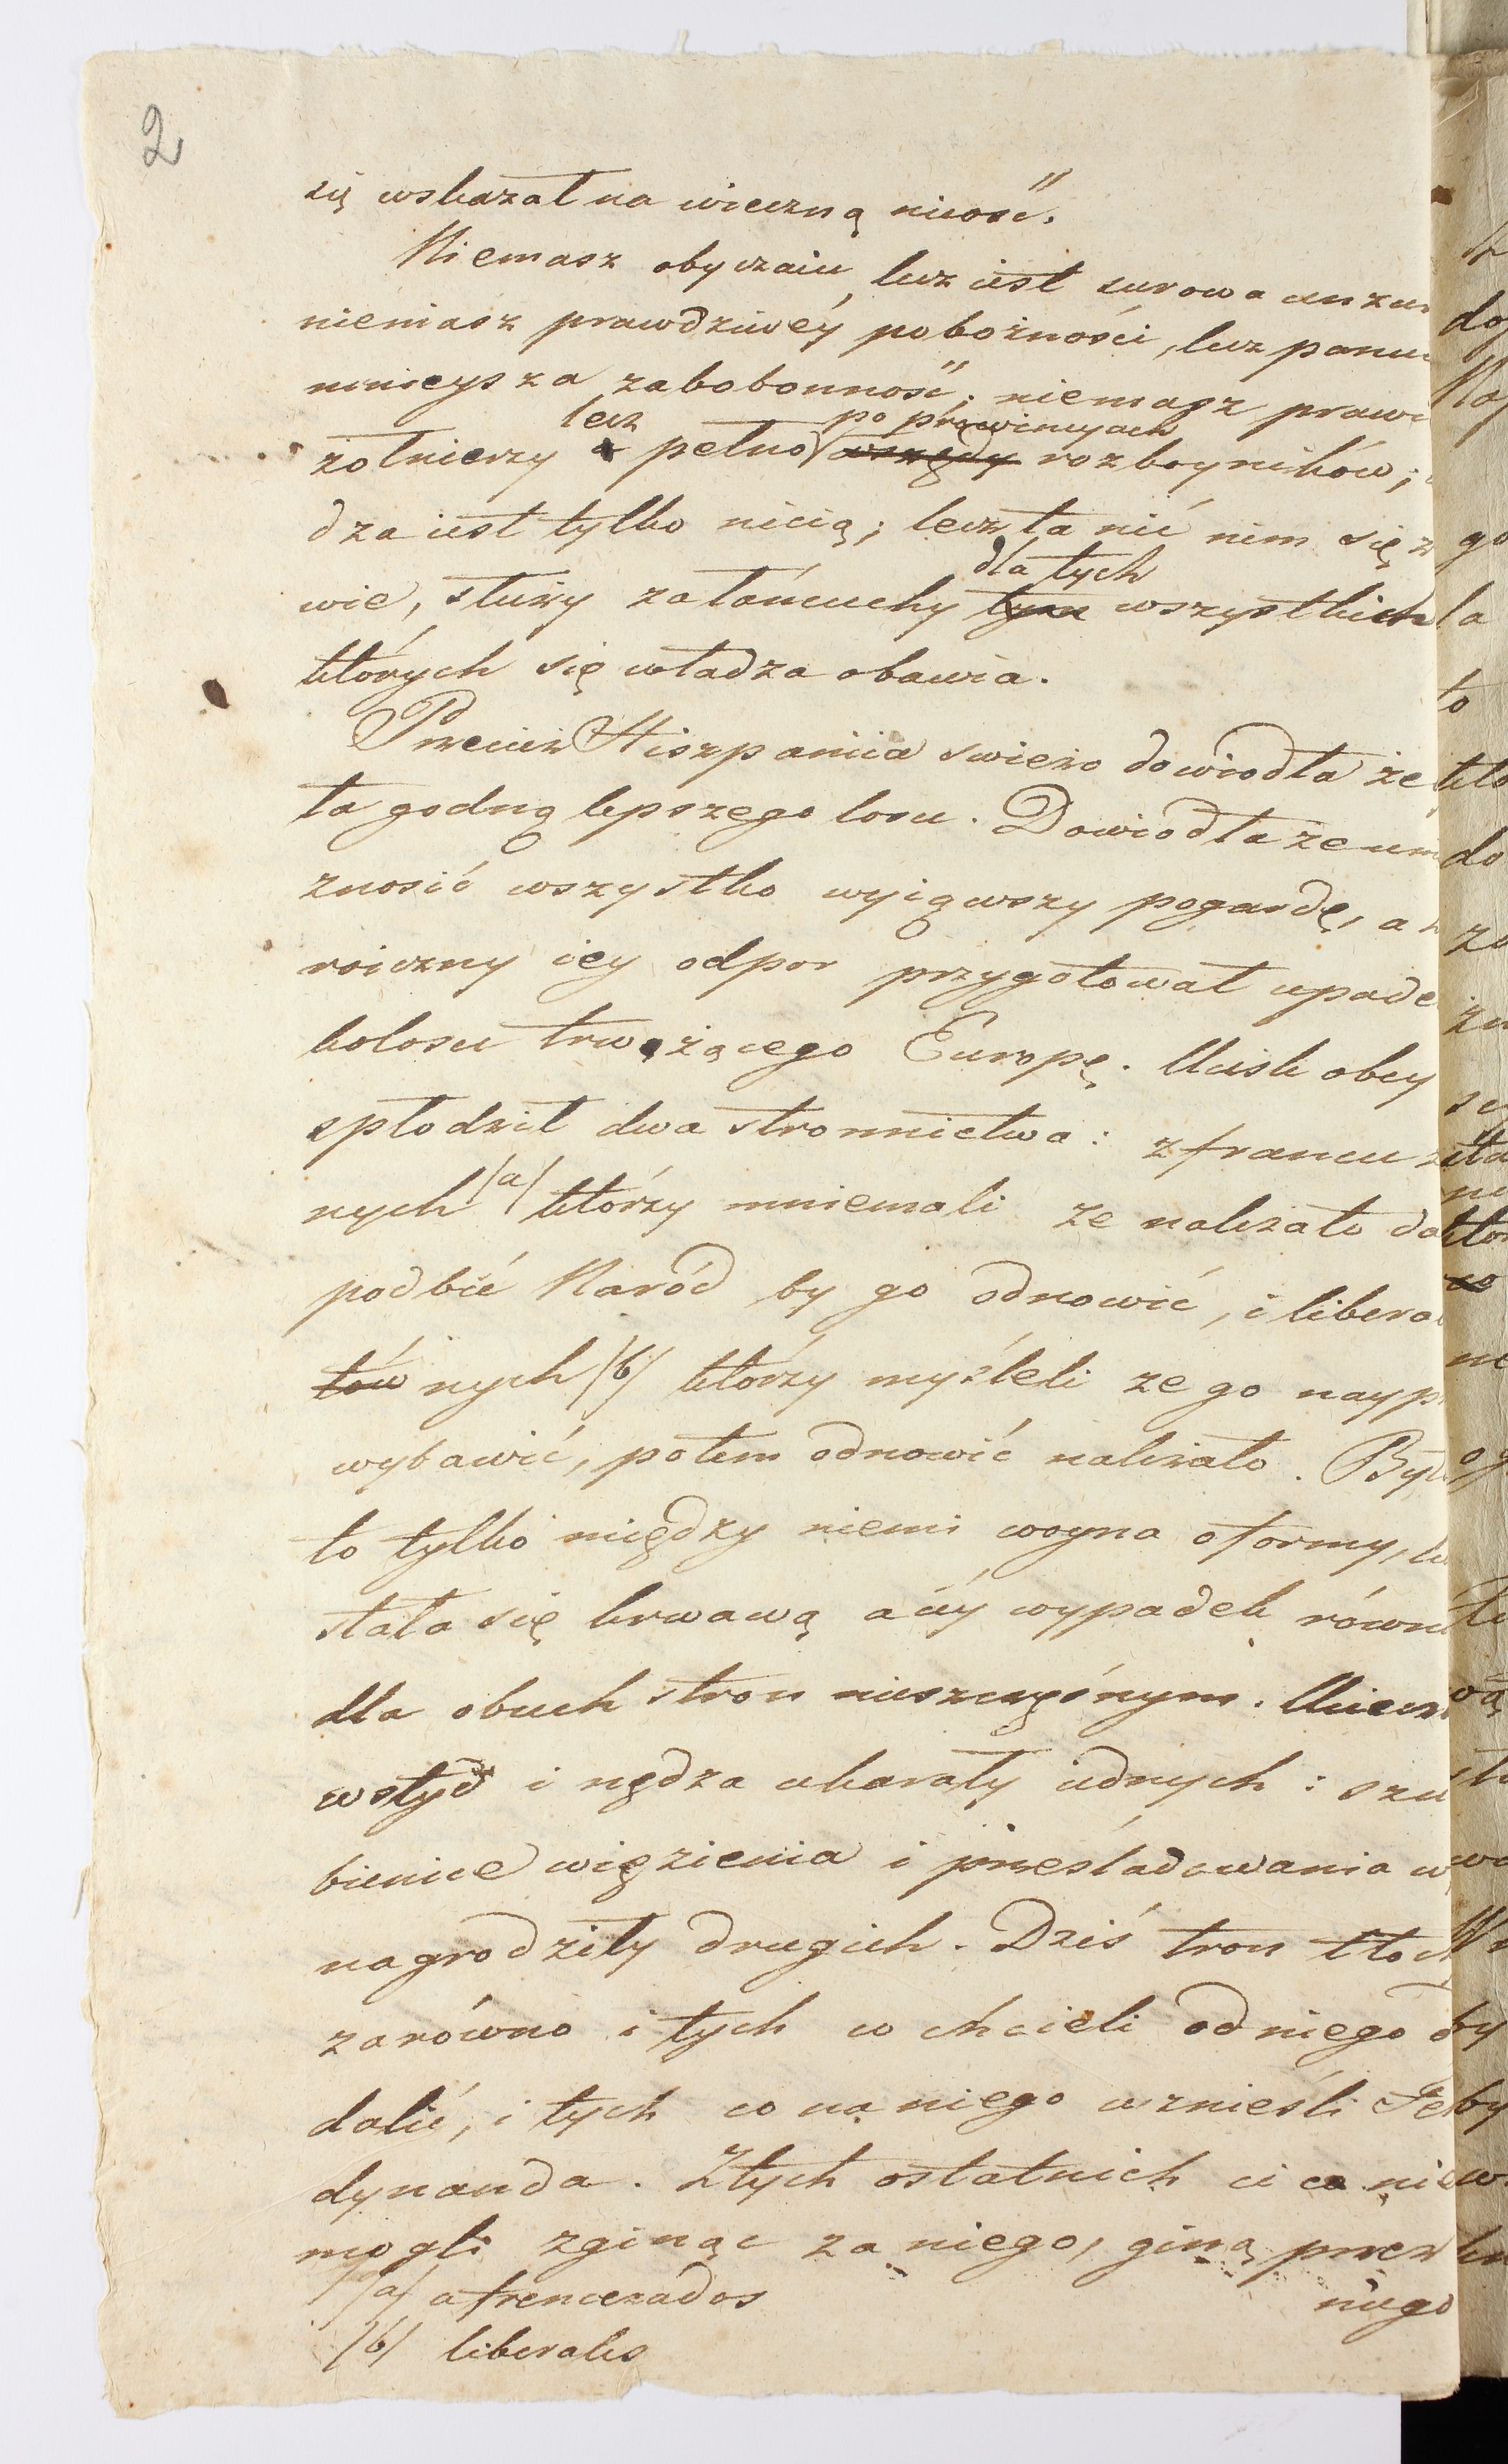 2
się wskazał na wieczną nicość.
Niemasz obyczaiu, lecz iest surowa cenzur
niemasz prawdziwéy pobożności, lecz panu
mnieysza zabobonność; niemasz praw
lecz po prowincyach
żołnierzy a pełno wszędy rozboyników;
dza iest tylko nicią; lecz ta nić nim się z
dla tych
wie, służy za łańcuchy tym wszystkich
których się władza obawia.
Przecież Hiszpaniia swieżo dowiodła że
ta godną lepszego losu. Dowiodła że um
znosić wszystko wyiąwszy pogardę, a
roiczny iey odpor przygotował upade
kolosu trwożącego Europę. Ucisk obcy
spłodził dwa stronnictwa: z francu
nych /a/ którzy mniemali że należało da
podbić Naród by go odnowić, i libera
tów nych /b/ którzy myśleli że go nayp
wybawić, potem odnowić należało. By
to tylko między niemi woyna o formy,
stała się krwawą a iéy wypadek równ
dla obuch stron nieszczęśnym. Uciecz
wstyd i nędza ukarały iednych: szu
bienice więzienia i prześladowania w
nagrodziły drugich. Dziś tron tłoc
zarówno i tych co chcieli od niego
dalić, i tych co na niego wznieśli Fe
dynanda. Z tych ostatnich ci co nie
mogli zginąć za niego, giną przez
niego
/a/ afrencezados
/b/ liberales